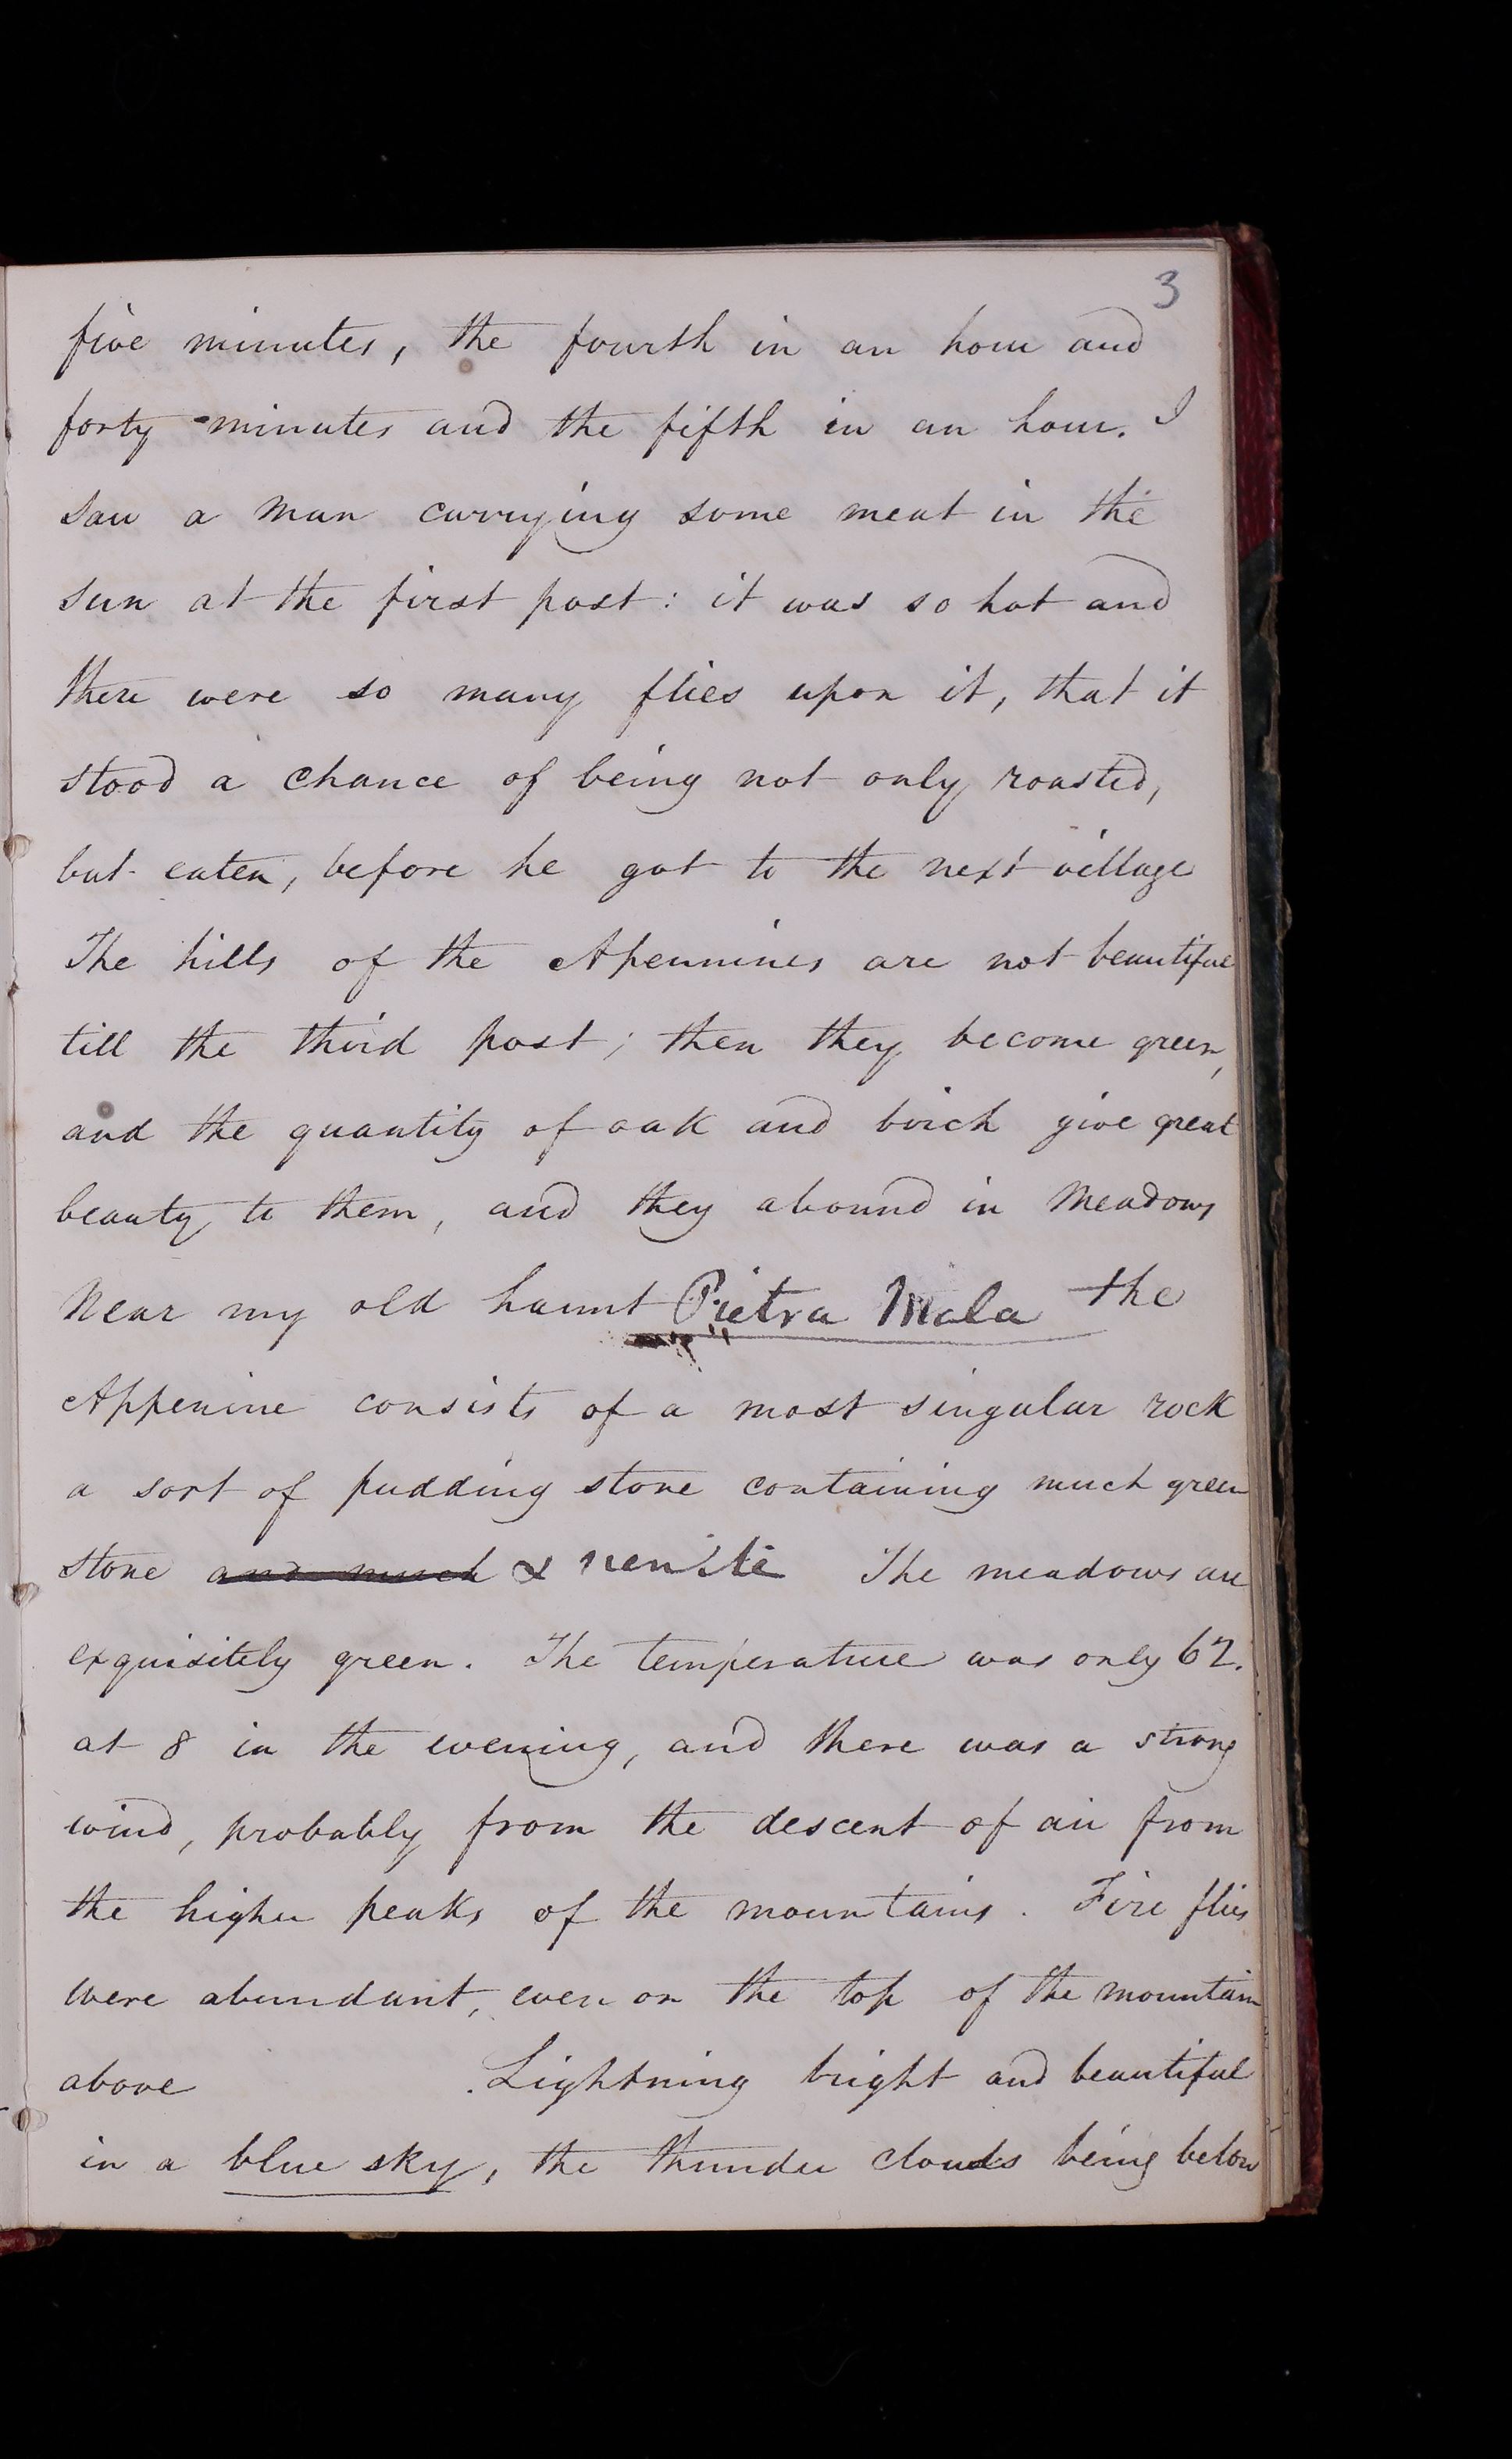 3
five minutes, the fourth in an hour and
forty minutes and the fifth in an hour. I
saw a man carrying some meat in the
sun at the first post: it was so hot and
there were so many flies upon it, that it
stood a chance of being not only roasted,
but eaten, before he got to the next village
The hills of the Apennines are not beautiful
till the third post; then they become green,
and the quantity of oak and birch give great
beauty to them, and they abound in meadows
Near my old haunt Pietra Mala the
Appenine consists of a most singular rock
a sort of pudding stone containing much green
stone and much & The meadows are
exquisitely green. The temperature was only 62.
at 8 in the evening, and there was a strong
wind, probably from the descent of air from
the higher peaks of the mountains. Fire flies
were abundant, even on the top of the mountain
above . Lightning bright and beautiful
in a blue sky, the thunder clouds being below